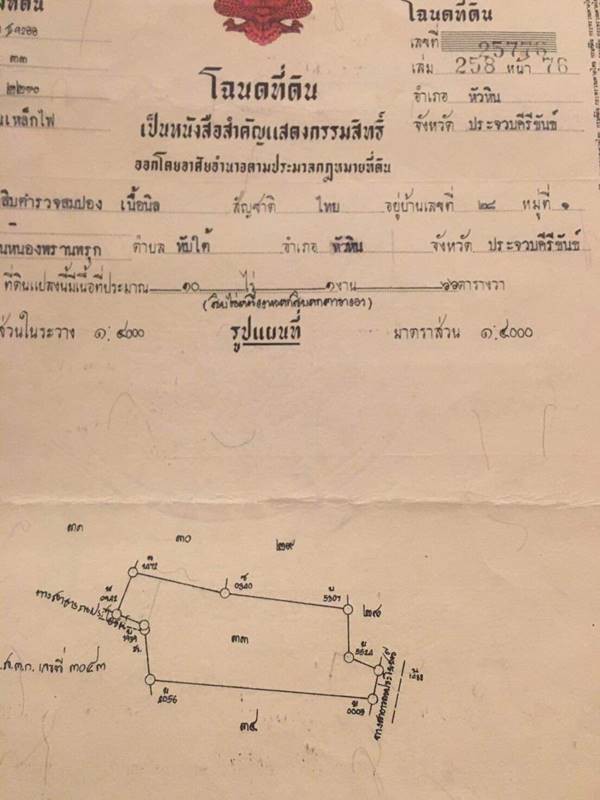 โฉนดที่ดิน
เลขที่ 25776
เล่ม 258 หน้า 76
อำเภอ หัวหิน
จังหวัด ประจวบคีรีขันธ์
๓๓
โฉนดที่ดิน
เป็นหนังสือสำคัญแสดงกรรมสิทธิ์
ออกโดยอาศัยอำนาจตามประมวลกฎหมายที่ดิน
สิบตำรวจสมปอง เนื้อนิล สัญชาติ ไทย อยู่บ้านเลขที่ ๒๘ หมู่ที่ ๑
นหนองพรานพรุก ตำบล ทับใต้ อำเภอ หัวหิน จังหวัด ประจวบคีรีขันธ์
ที่ดินแปลงนี้มีเนื้อที่ประมาณ ๑๐ ไร่ ๑ งาน ๖๖ ตารางวา
(สิบไร่หนึ่งงานหกสิบหกตารางวา)
ส่วนในระวาง ๑:๔๐๐๐ รูปแผนที่ มาตราส่วน ๑:๔๐๐๐
๓๐
๒๙
๓๓
ทางสาธารณประโยชน์
ส.ต.ก. เลขที่ ๓๐๔๓
๓๔